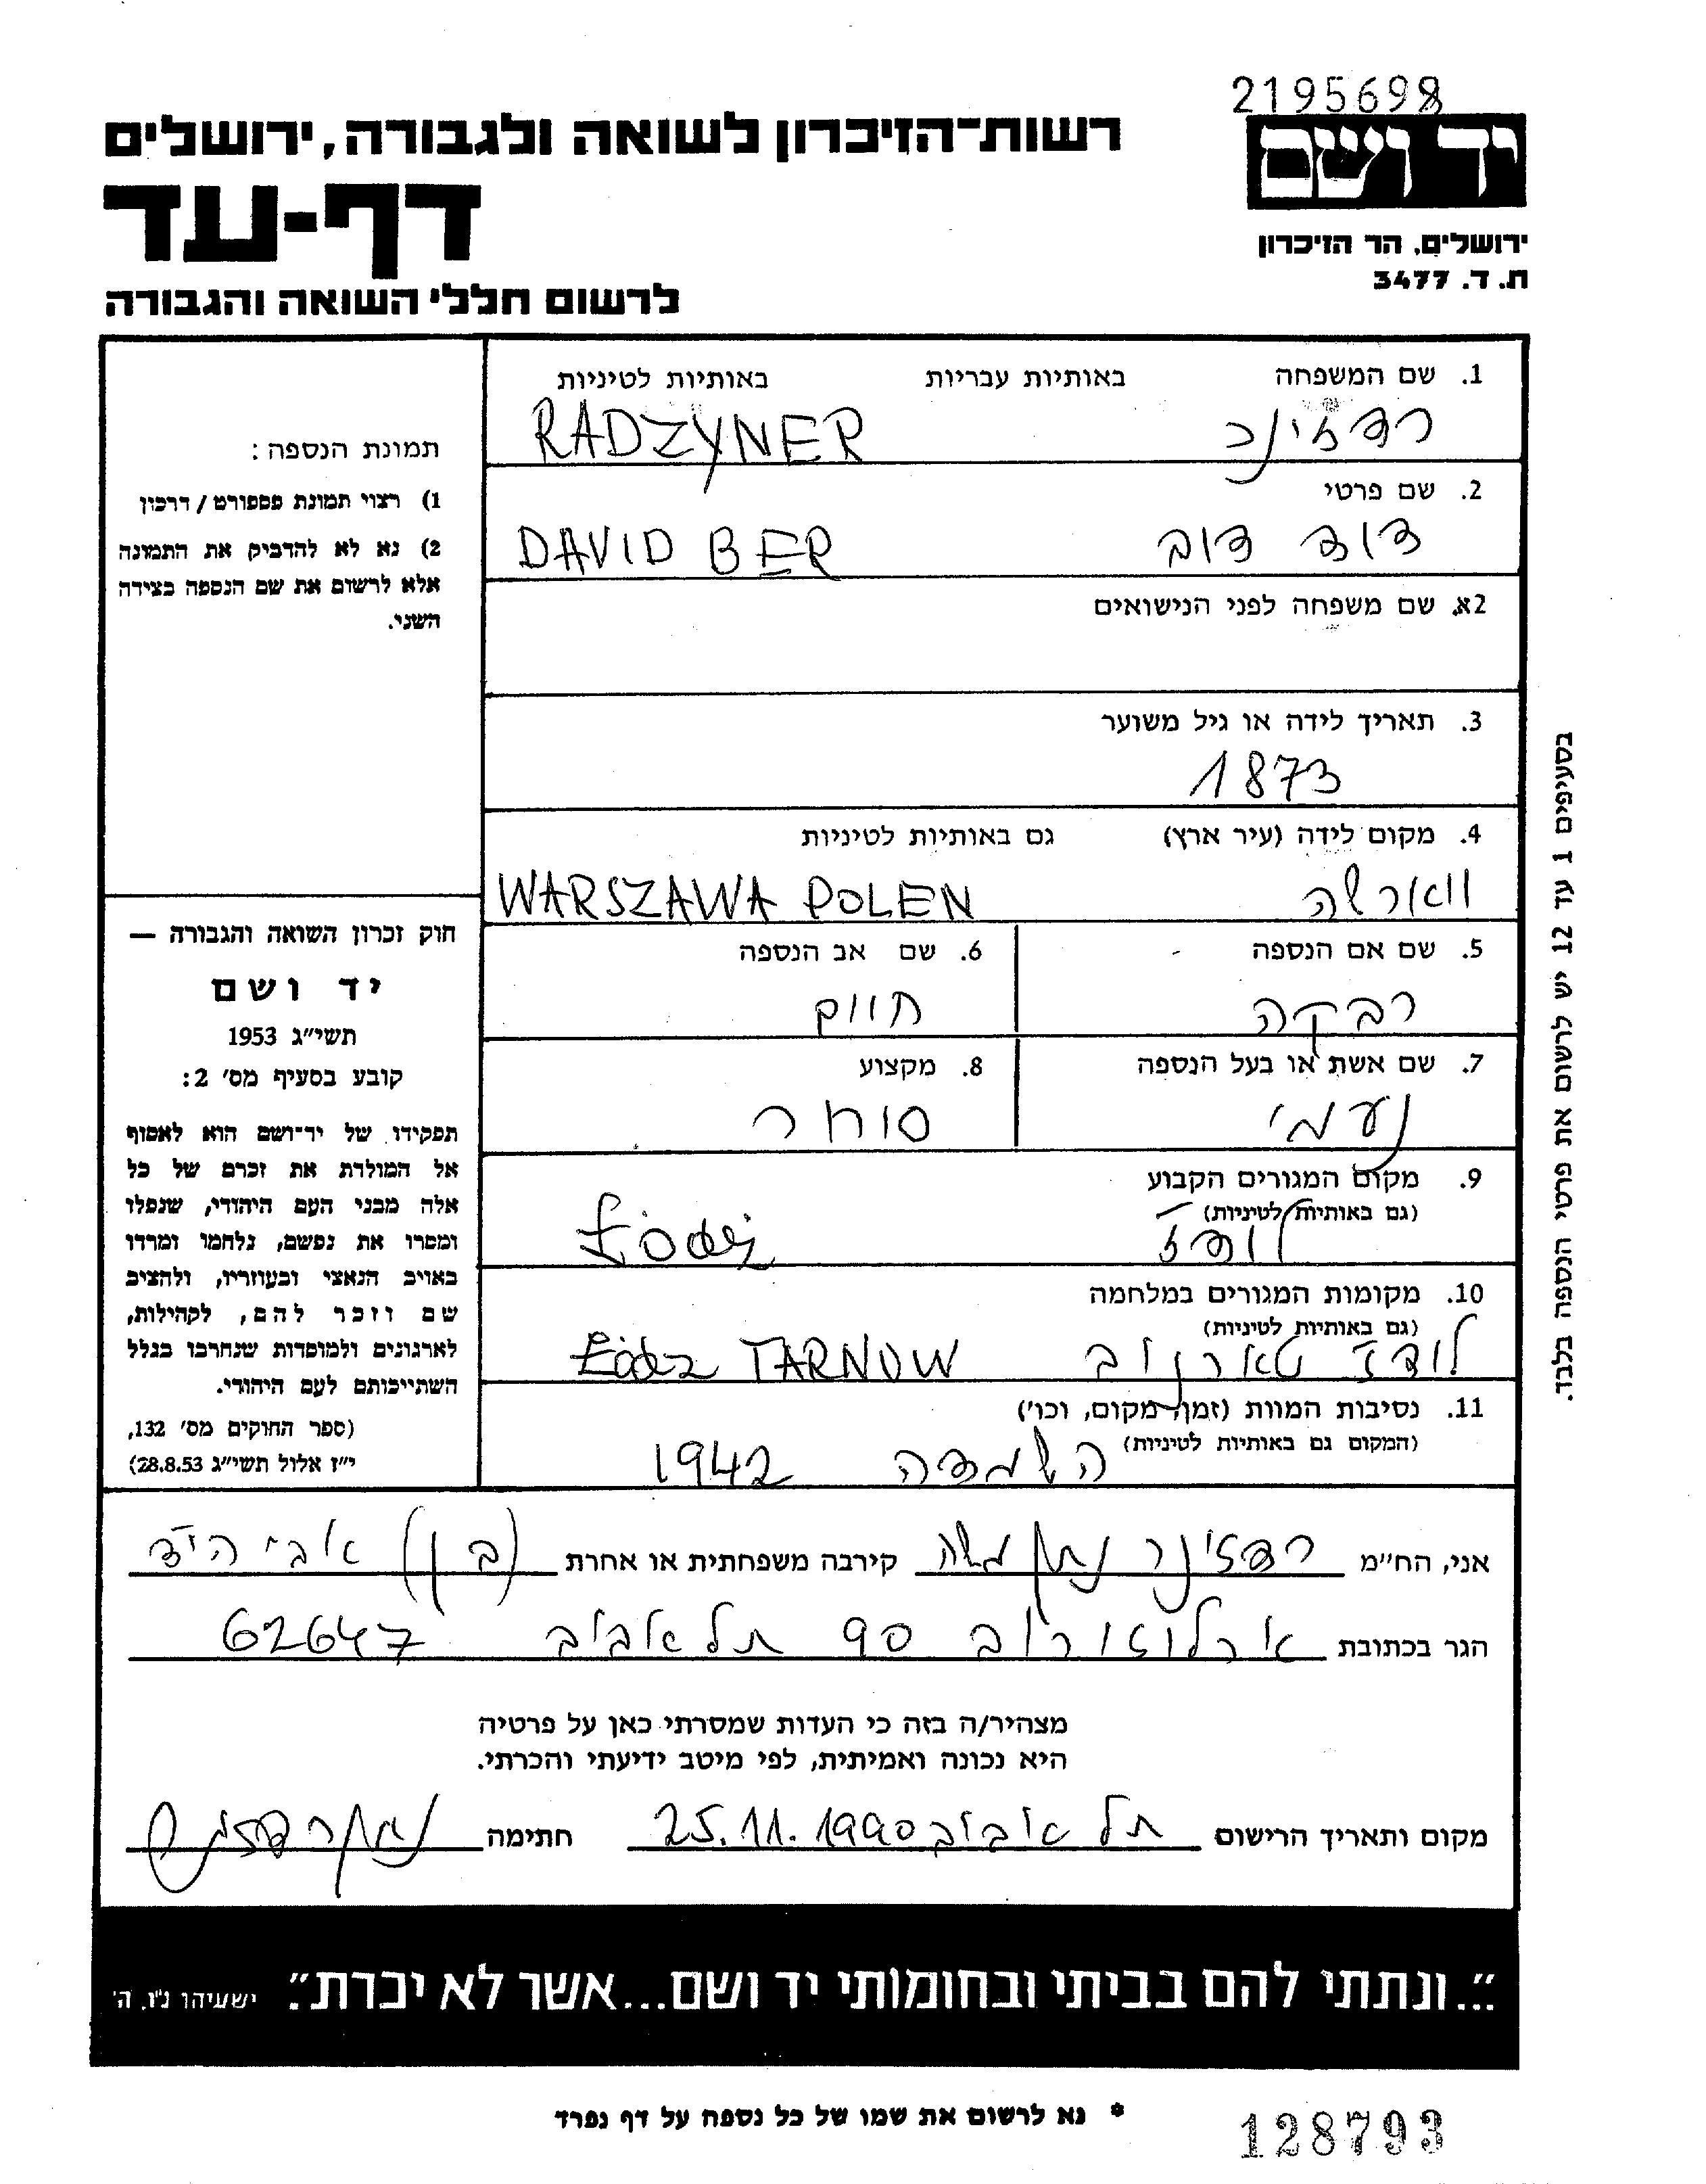 2195698
יד ושם
רשות־הזיכרון לשואה ולגבורה, ירושלים
דף-עד
ירושלים, הר הזיכרון
ת. ד. 3477
לרשום חללי השואה והגבורה
1. שם המשפחה באותיות עבריות באותיות לטיניות
רדזינר RADZYNER
2. שם פרטי
דוד דוב DAVID BER
2א. שם משפחה לפני הנישואים
3. תאריך לידה או גיל משוער
1873
4. מקום לידה (עיר ארץ) גם באותיות לטיניות
ווארשה WARSZAWA POLEN
5. שם אם הנספה 6. שם אב הנספה
רבקה חיים
7. שם אשת או בעל הנספה 8. מקצוע
נעמי סוחר
9. מקום המגורים הקבוע
(גם באותיות לטיניות)
לודז Łódź
10. מקומות המגורים במלחמה
(גם באותיות לטיניות)
לודז טארנוב Łódz TARNOW
11. נסיבות המוות (זמן, מקום, וכו')
(המקום גם באותיות לטיניות)
השמדה 1942
תמונת הנספה:
1) רצוי תמונת פספורט / דרכון
2) נא לא להדביק את התמונה
אלא לרשום את שם הנספה בצידה
השני.
חוק זכרון השואה והגבורה —
יד ושם
תשי״ג 1953
קובע בסעיף מס׳ 2:
תפקידו של יד־ושם הוא לאסוף
אל המולדת את זכרם של כל
אלה מבני העם היהודי, שנפלו
ומסרו את נפשם, נלחמו ומרדו
באויב הנאצי ובעוזריו, ולהציב
שם וזכר להם, לקהילות,
לארגונים ולמוסדות שנחרבו בגלל
השתייכותם לעם היהודי.
(ספר החוקים מס׳ 132,
י״ז אלול תשי״ג 28.8.53)
בסעיפים 1 עד 12 יש לרשום את פרטי הנספה בלבד.
אני, הח״מ רדזינר נתן משה קירבה משפחתית או אחרת (בן) אבי הי״ד
הגר בכתובת ארלוזורוב 90 תל אביב 62647
מצהיר/ה בזה כי העדות שמסרתי כאן על פרטיה
היא נכונה ואמיתית, לפי מיטב ידיעתי והכרתי.
מקום ותאריך הרישום תל אביב 25.11.1990 חתימה
״...ונתתי להם בביתי ובחומותי יד ושם...אשר לא יכרת״. ישעיהו נ״ו, ה׳
* נא לרשום את שמו של כל נספה על דף נפרד
128793